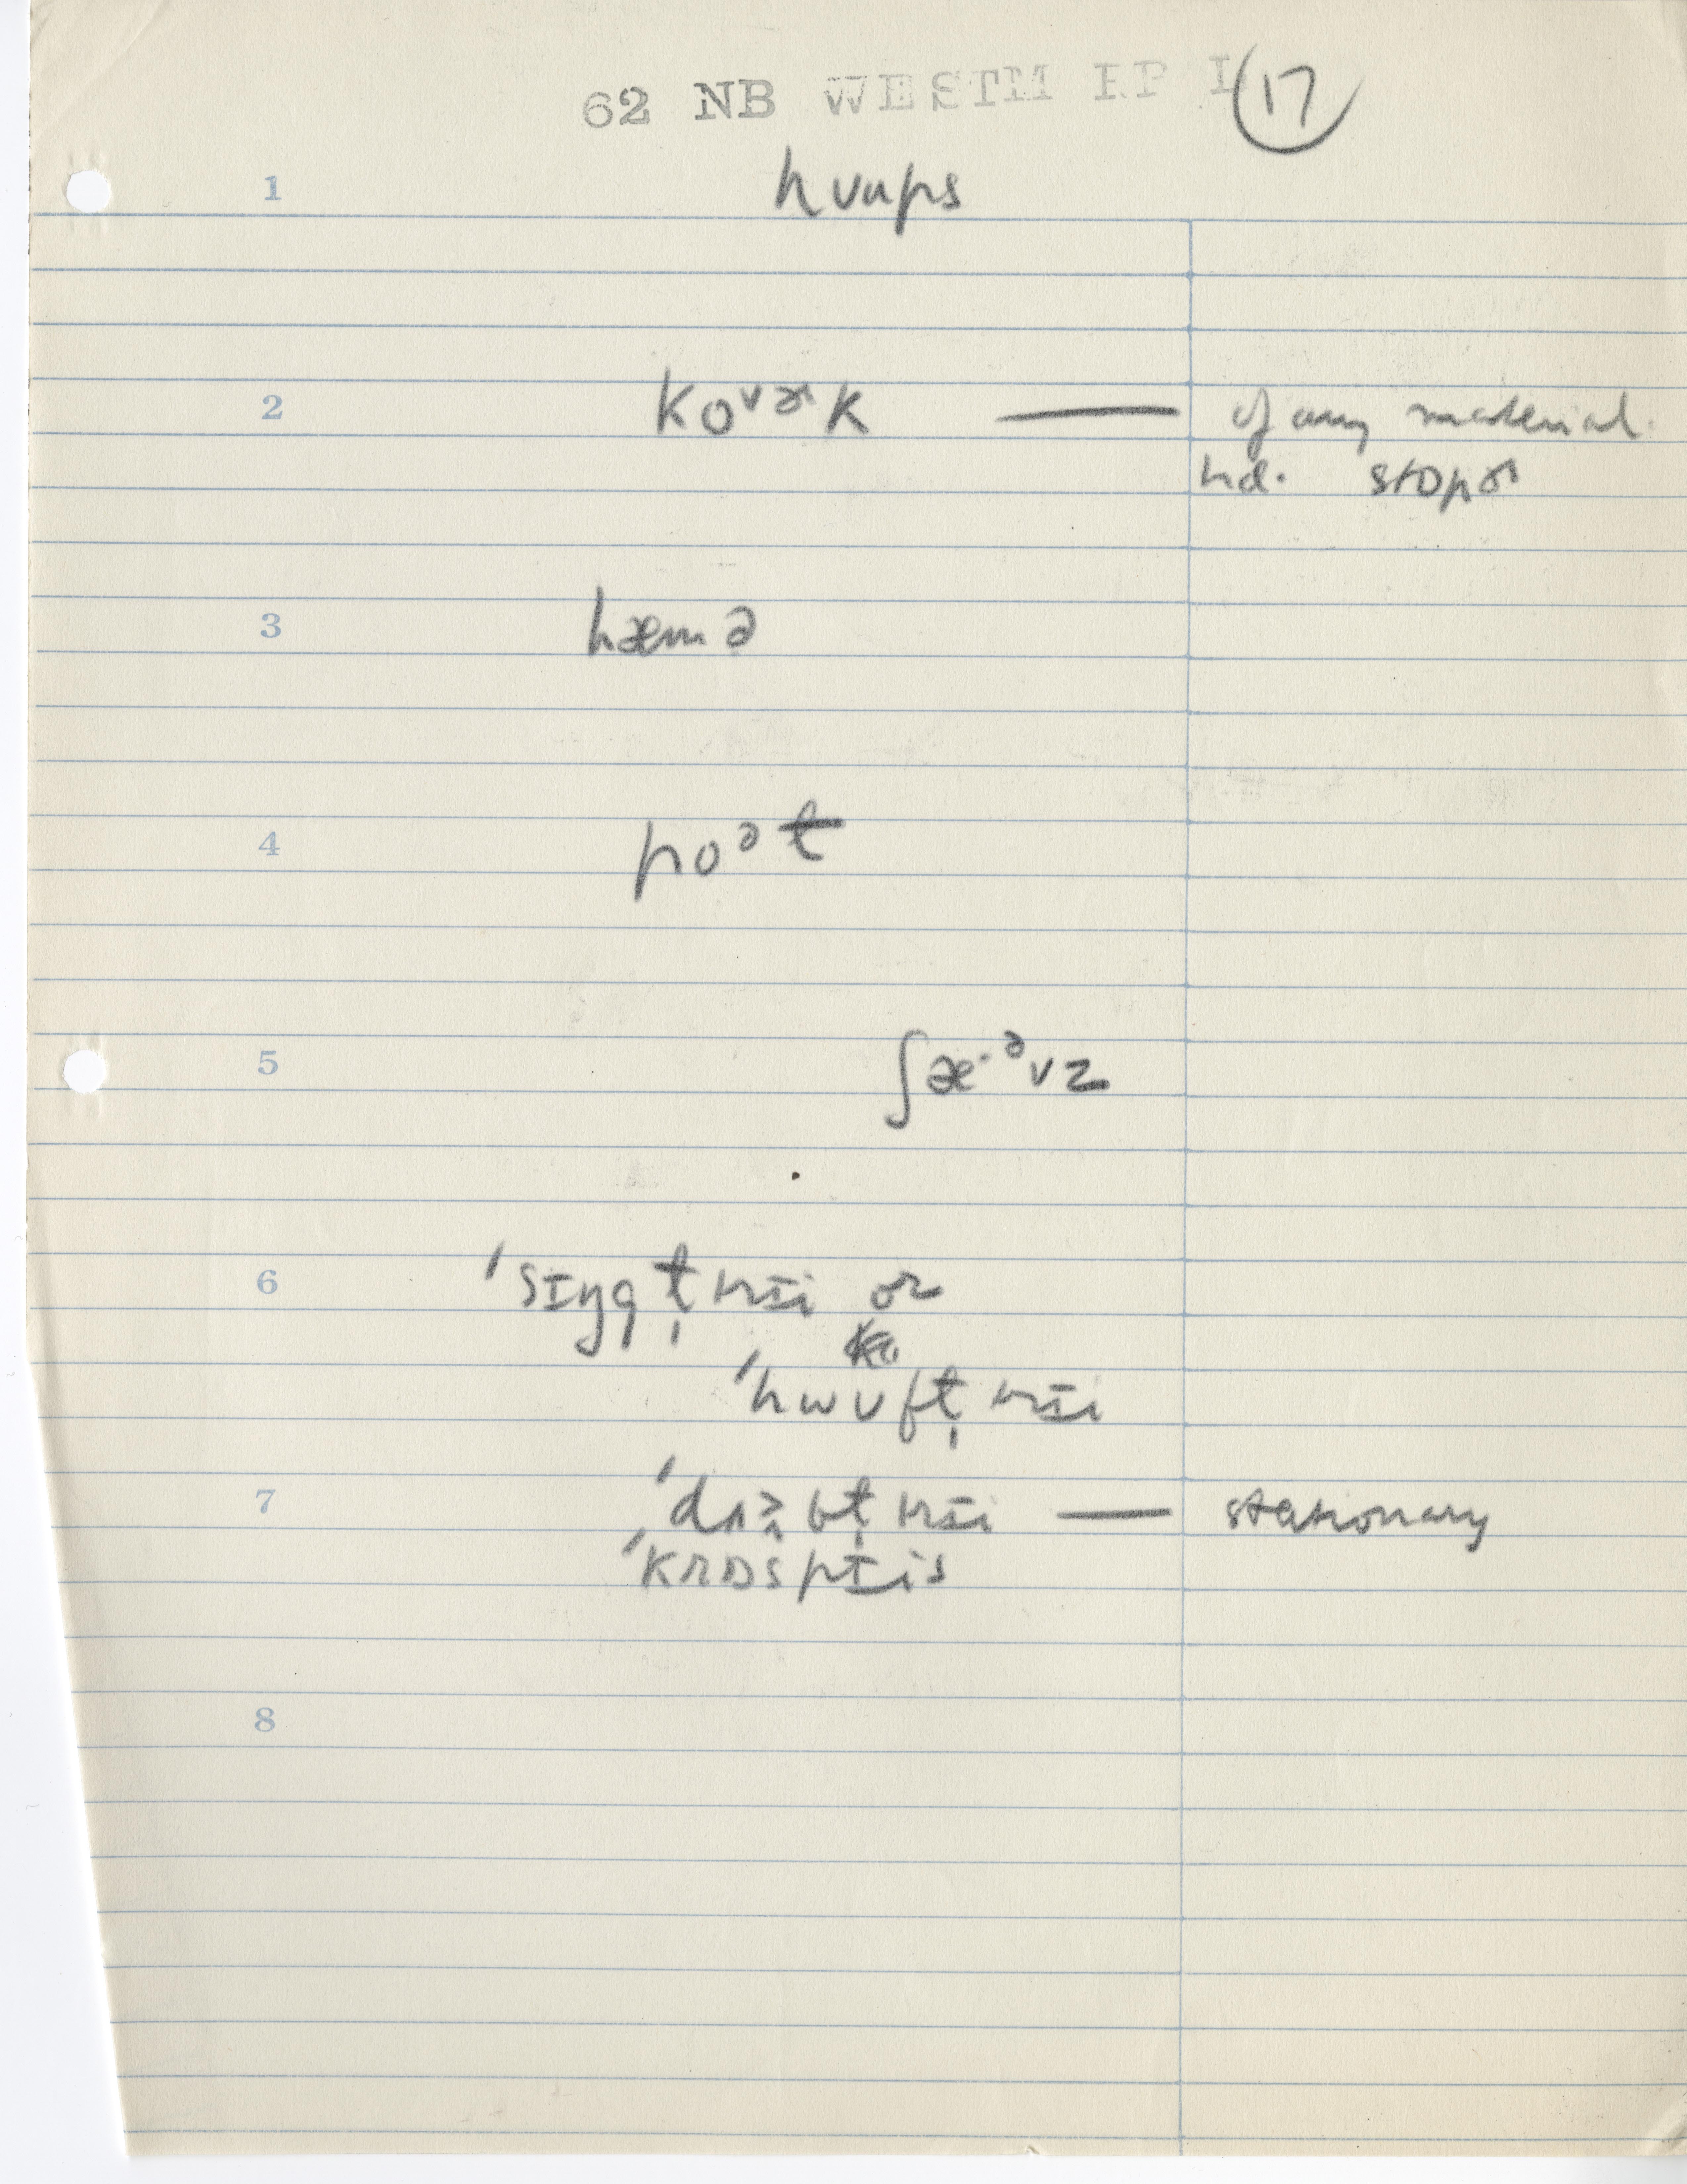 62 NB WESTM RP I 17
1 hʊups
2 koᵛɚk — of any material.
hd. stopɚ
3 hæmə
4 poᵊt
5 ʃæ·ᵊvz
6 ˈsɪŋgt̩rɪi or
ˈhwʊft̩rɪi
7 ˈdʌbt̩rɪi — stationary
ˈkrɒspɪis
8